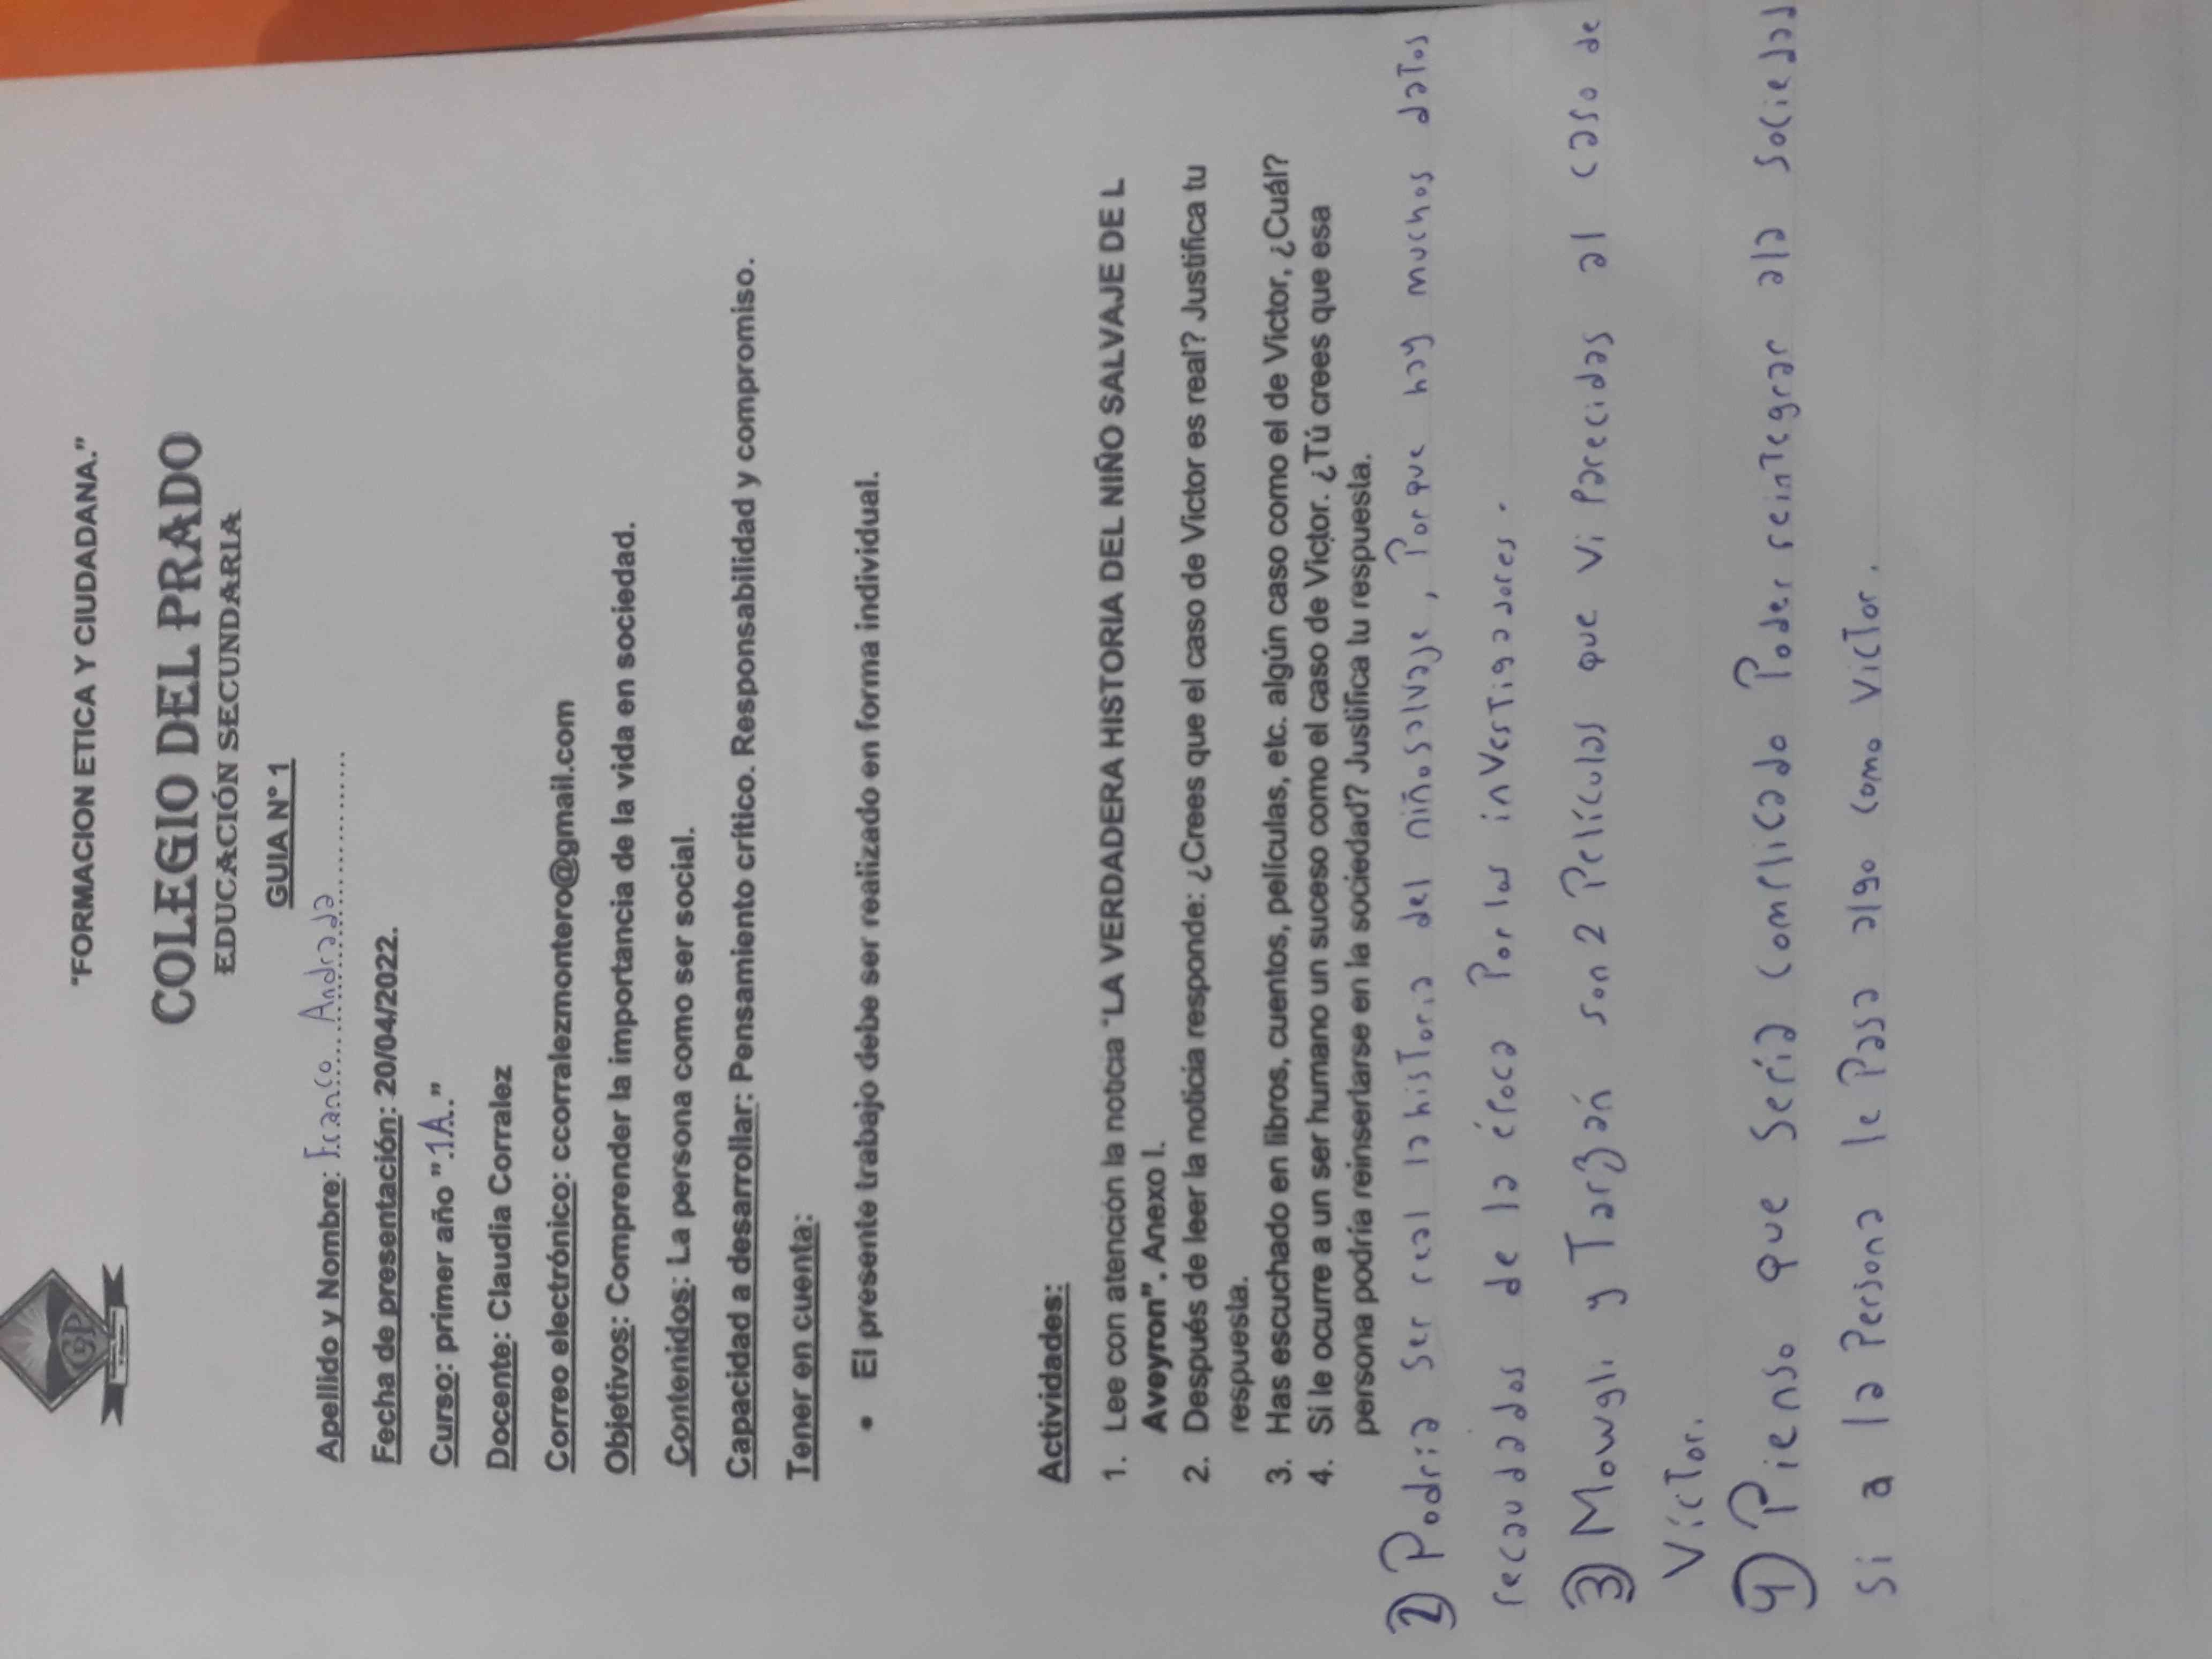 "FORMACION ETICA Y CIUDADANA."
COLEGIO DEL PRADO
EDUCACIÓN SECUNDARIA
GUIA N° 1
Apellido y Nombre: Franco Andrada
Fecha de presentación: 20/04/2022.
Curso: primer año "1A."
Docente: Claudia Corralez
Correo electrónico: ccorralezmontero@gmail.com
Objetivos: Comprender la importancia de la vida en sociedad.
Contenidos: La persona como ser social.
Capacidad a desarrollar: Pensamiento crítico. Responsabilidad y compromiso.
Tener en cuenta:
• El presente trabajo debe ser realizado en forma individual.
Actividades:
1. Lee con atención la noticia "LA VERDADERA HISTORIA DEL NIÑO SALVAJE DE L
Aveyron". Anexo I.
2. Después de leer la noticia responde: ¿Crees que el caso de Victor es real? Justifica tu
respuesta.
3. Has escuchado en libros, cuentos, películas, etc. algún caso como el de Victor, ¿Cuál?
4. Si le ocurre a un ser humano un suceso como el caso de Victor. ¿Tú crees que esa
persona podría reinsertarse en la sociedad? Justifica tu respuesta.
2) Podria ser real la historia del niño salvaje, Porque hay muchos datos
recaudados de la época Por los investigadores.
3) Mowgli y Tarzán son 2 Películas que vi Parecidas al caso de
Víctor.
4) Pienso que Sería Complicado Poder reintegrar a la sociedad
si a la Persona le Pasa algo como Victor.